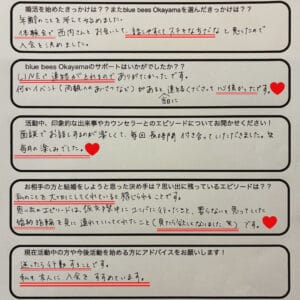 婚活を始めたきっかけは？？またblue bees Okayamaを選んだきっかけは？？
年齢のことを考えて始めました。
体験会で西内さんとお会いして、話しやすくてステキな方だなと思ったので
入会を決めました。
blue bees Okayamaのサポートはいかがでしたか？？
LINEで連絡がとれるので ありがたかったです。
何かイベント(両親へのあいさつなど)があると連絡くださって心強かったです。
活動中、印象的な出来事やカウンセラーとのエピソードについてお聞かせください！
面談でお話しするのが楽しくて、毎回長時間付き合っていただきました。
毎月の楽しみでした。
お相手の方と結婚をしようと思った決め手は？思い出に残っているエピソードは？？
私のことを大切にしてくれていると感じたことです。
思い出のエピソードは、
婚約指輪を見に連れていってくれたこと(見たら欲しくなりました 笑)です。
現在活動中の方や今後活動を始める方にアドバイスをお願いします！
迷ったら行動することです。
私も友人に入会をすすめています。